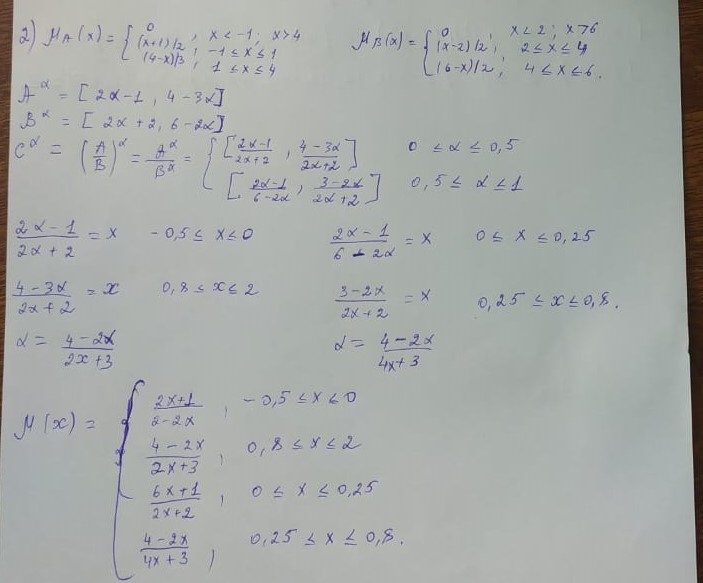 2) μA(x) = { 0 , x < -1; x > 4
(x+1)/2 , -1 ≤ x ≤ 1
(4-x)/3 , 1 ≤ x ≤ 4
μB(x) = { 0 , x < 2; x > 6
(x-2)/2 , 2 ≤ x ≤ 4
(6-x)/2 , 4 ≤ x ≤ 6.
A^α = [2α-1, 4-3α]
B^α = [2α+2, 6-2α]
C^α = (A/B)^α = A^α/B^α = { [(2α-1)/(2α+2), (4-3α)/(2α+2)] 0 ≤ α ≤ 0,5
[(2α-1)/(6-2α), (3-2α)/(2α+2)] 0,5 ≤ α ≤ 1
(2α-1)/(2α+2) = x -0,5 ≤ x ≤ 0 (2α-1)/(6-2α) = x 0 ≤ x ≤ 0,25
(4-3α)/(2α+2) = x 0,8 ≤ x ≤ 2 (3-2α)/(2α+2) = x 0,25 ≤ x ≤ 0,8.
α = (4-2x)/(2x+3) α = (4-2α)/(4x+3)
μ(x) = { (2x+1)/(2-2x) , -0,5 ≤ x ≤ 0
(4-2x)/(2x+3) , 0,8 ≤ x ≤ 2
(6x+1)/(2x+2) , 0 ≤ x ≤ 0,25
(4-2x)/(4x+3) , 0,25 ≤ x ≤ 0,8.